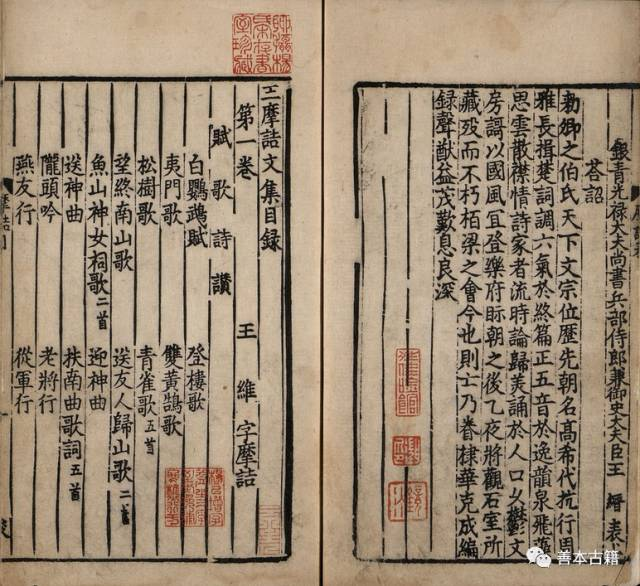 銀青光禄大夫尚書兵部侍郎兼御史大夫臣王縉表
荅詔
勑卿之伯氏天下文宗位歷先朝名髙希代抗行周
雅長揖楚詞調六氣於終篇正五音於逸韻泉飛藻
思雲散襟情詩家者流時論歸美誦於人口久欝文
房謌以國風宜登樂府眎朝之後乙夜將觀石室所
藏歿而不朽栢梁之會今也則亡乃眷棣華克成編
録聲猷益茂歎息良深
王摩詰文集目録
第一卷 王維字摩詰
賦歌詩讚
白鸚鵡賦 登樓歌
夷門歌 雙黃鵠歌
松樹歌 青雀歌五首
望終南山歌 送友人歸山歌二首
魚山神女祠歌二首 迎神曲
送神曲 扶南曲歌詞五首
隴頭吟 老將行
燕友行 從軍行
善本古籍